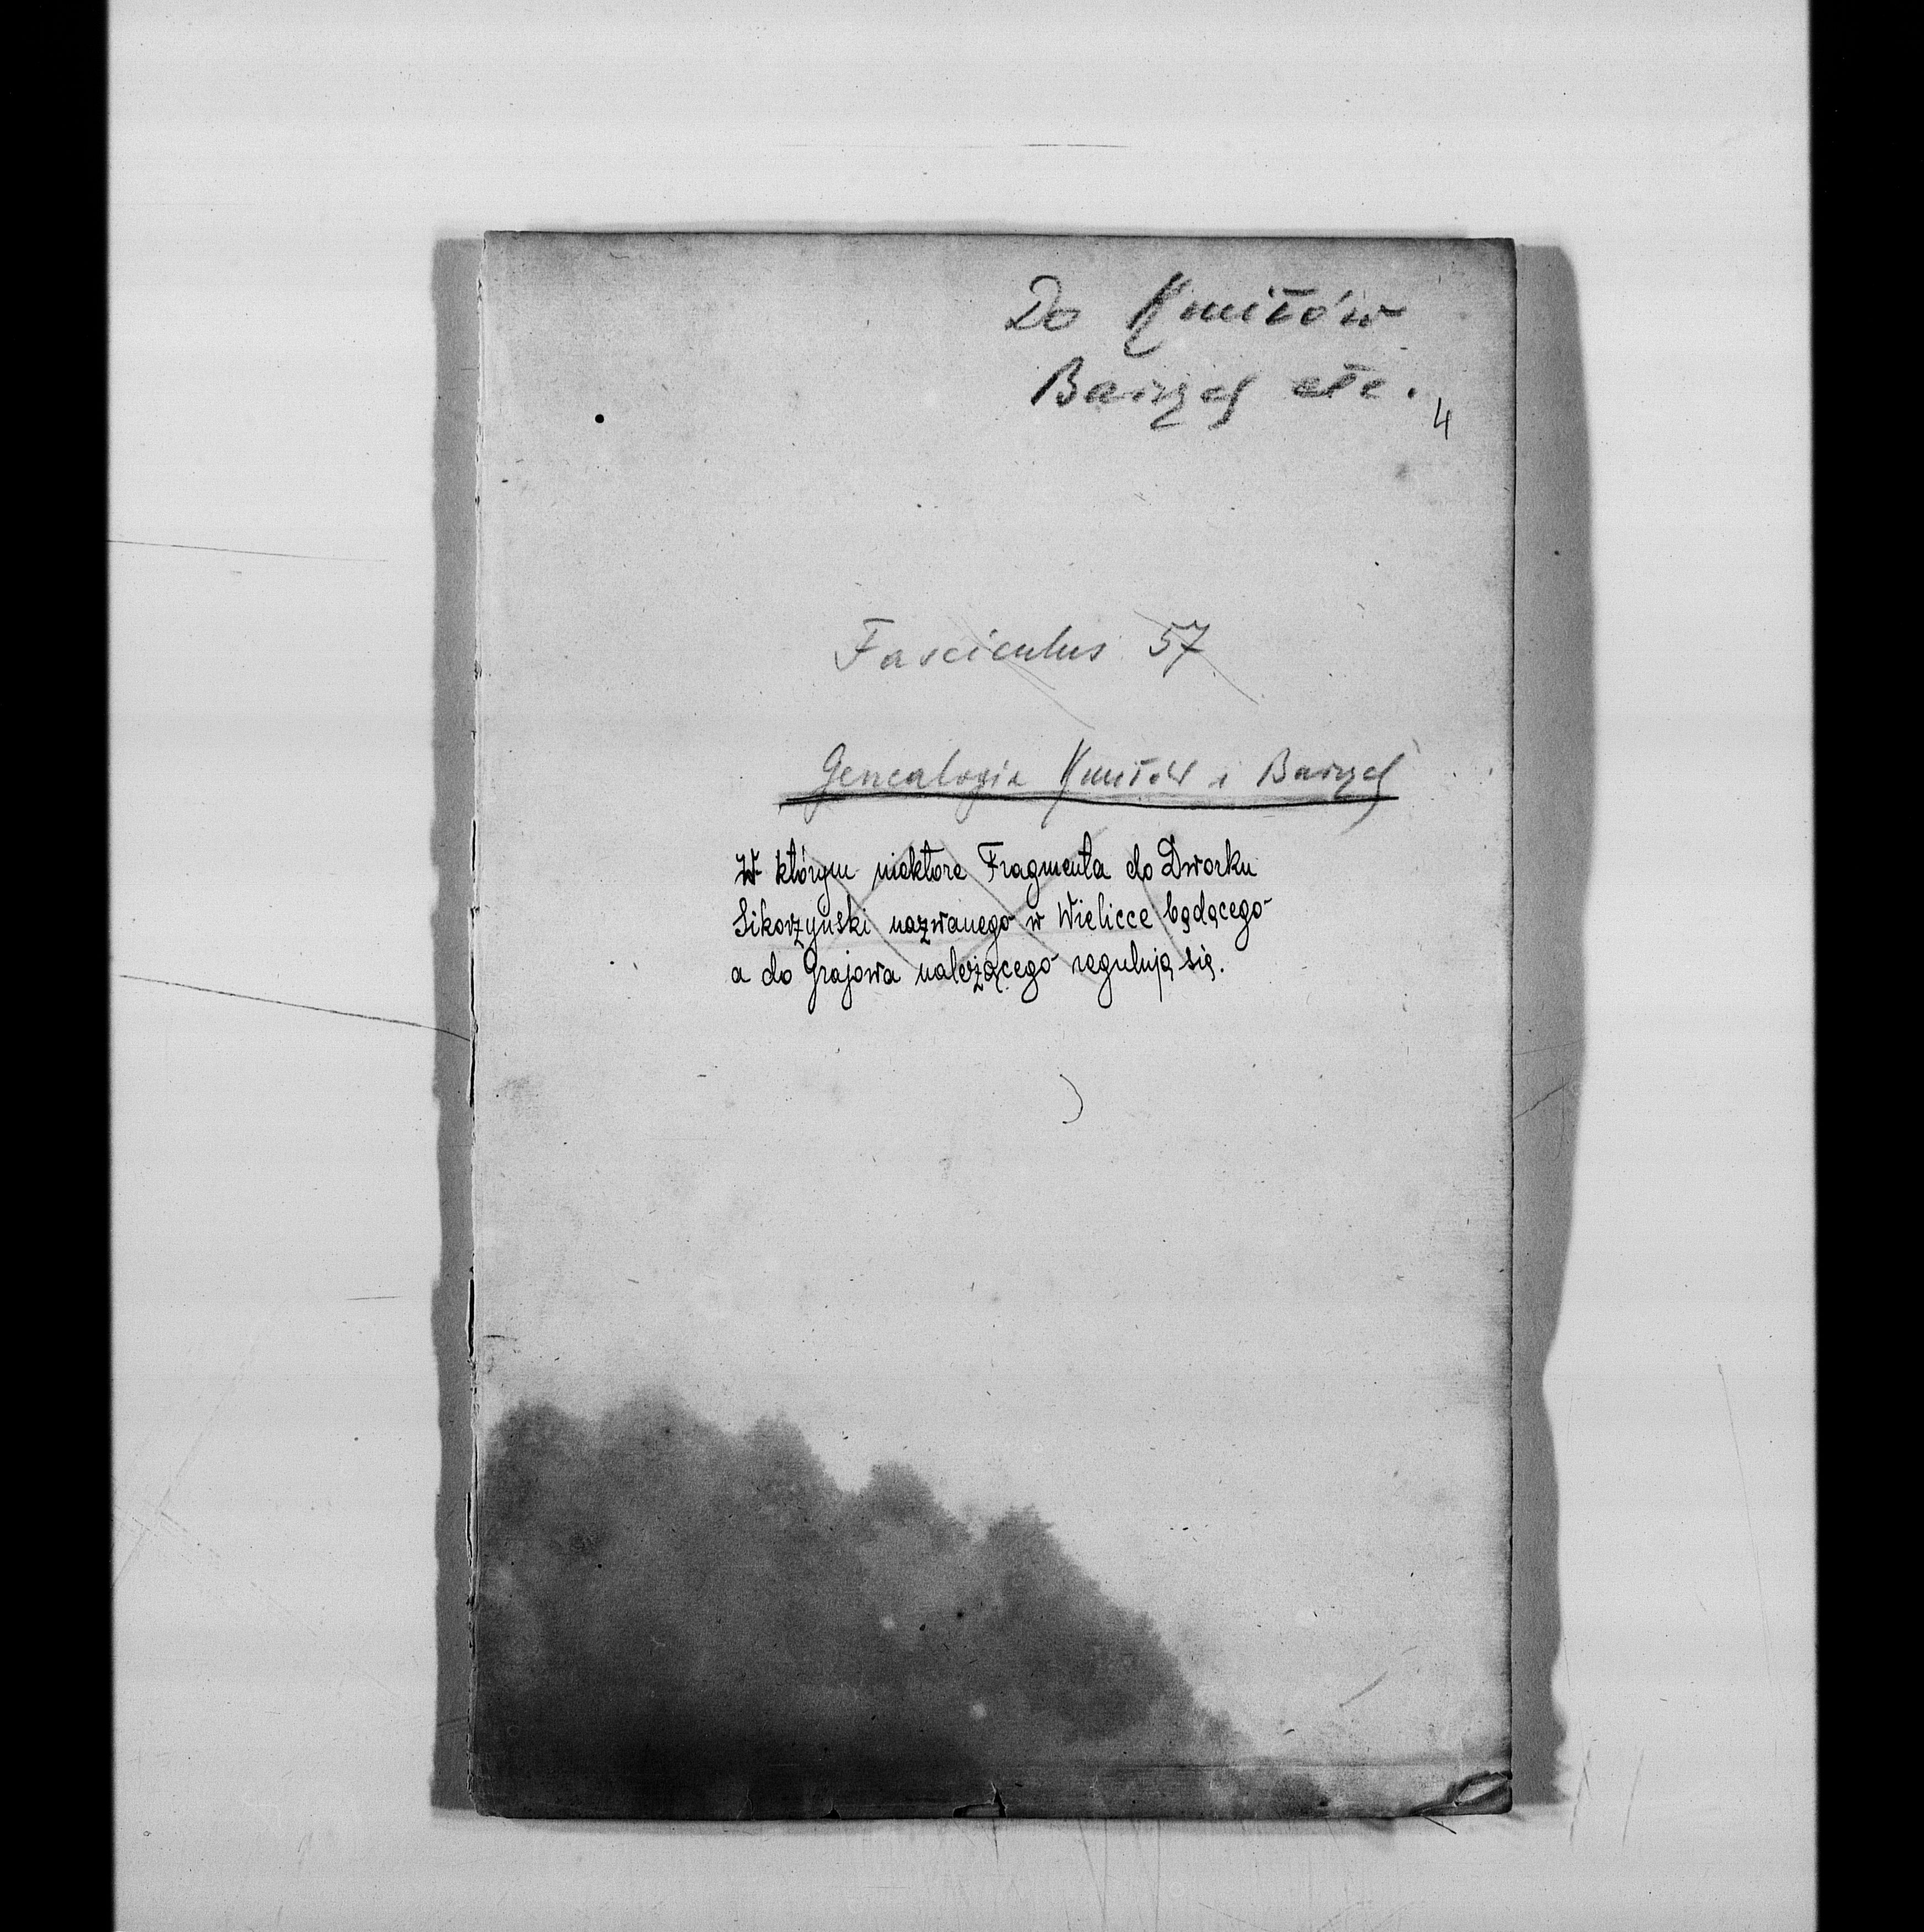 Do Kmitów
Barzych etc.
4
Fasciculus 57
Genealogia Kmitów i Barzych
W którym niektore Fragmenta do Dworku
Sikorzyński nazwanego w Wielicce będącego
a do Grajowa należącego regulują się.